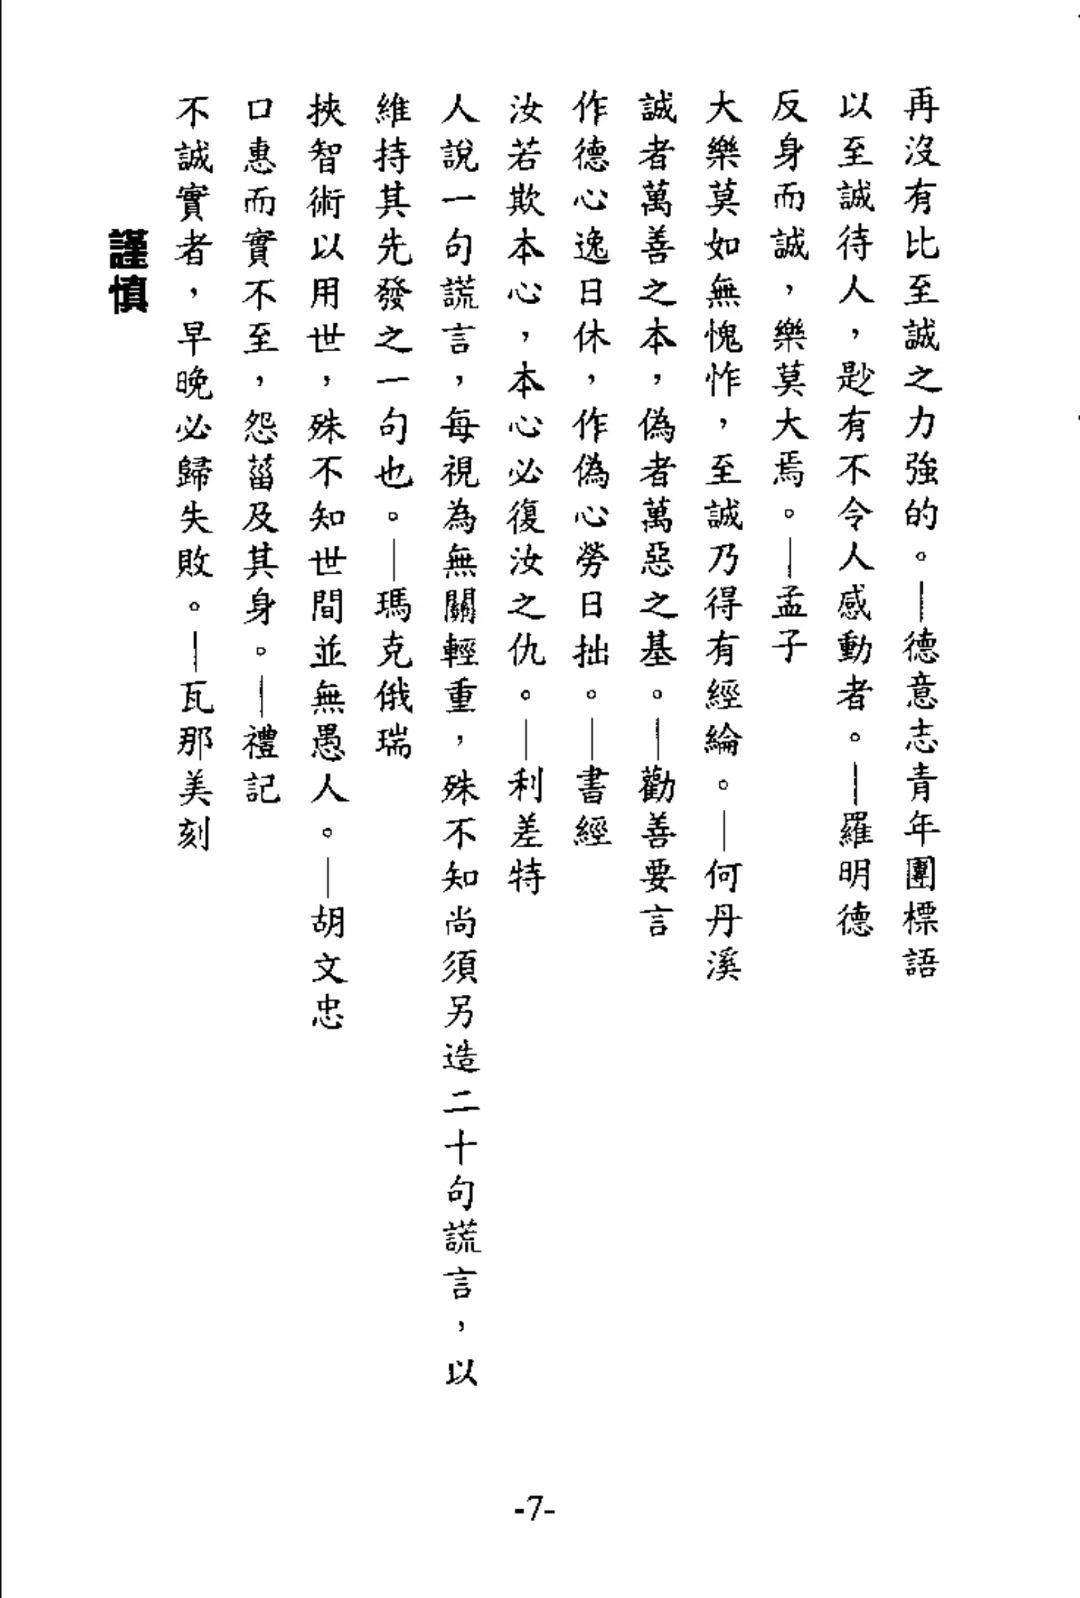 再沒有比至誠之力強的。—德意志青年團標語
以至誠待人，尠有不令人感動者。—羅明德
反身而誠，樂莫大焉。—孟子
大樂莫如無愧怍，至誠乃得有經綸。—何丹溪
誠者萬善之本，偽者萬惡之基。—勸善要言
作德心逸日休，作偽心勞日拙。—書經
汝若欺本心，本心必復汝之仇。—利差特
人說一句謊言，每視為無關輕重，殊不知尚須另造二十句謊言，以
維持其先發之一句也。—瑪克俄瑞
挾智術以用世，殊不知世間並無愚人。—胡文忠
口惠而實不至，怨菑及其身。—禮記
不誠實者，早晚必歸失敗。—瓦那美刻
謹慎
-7-